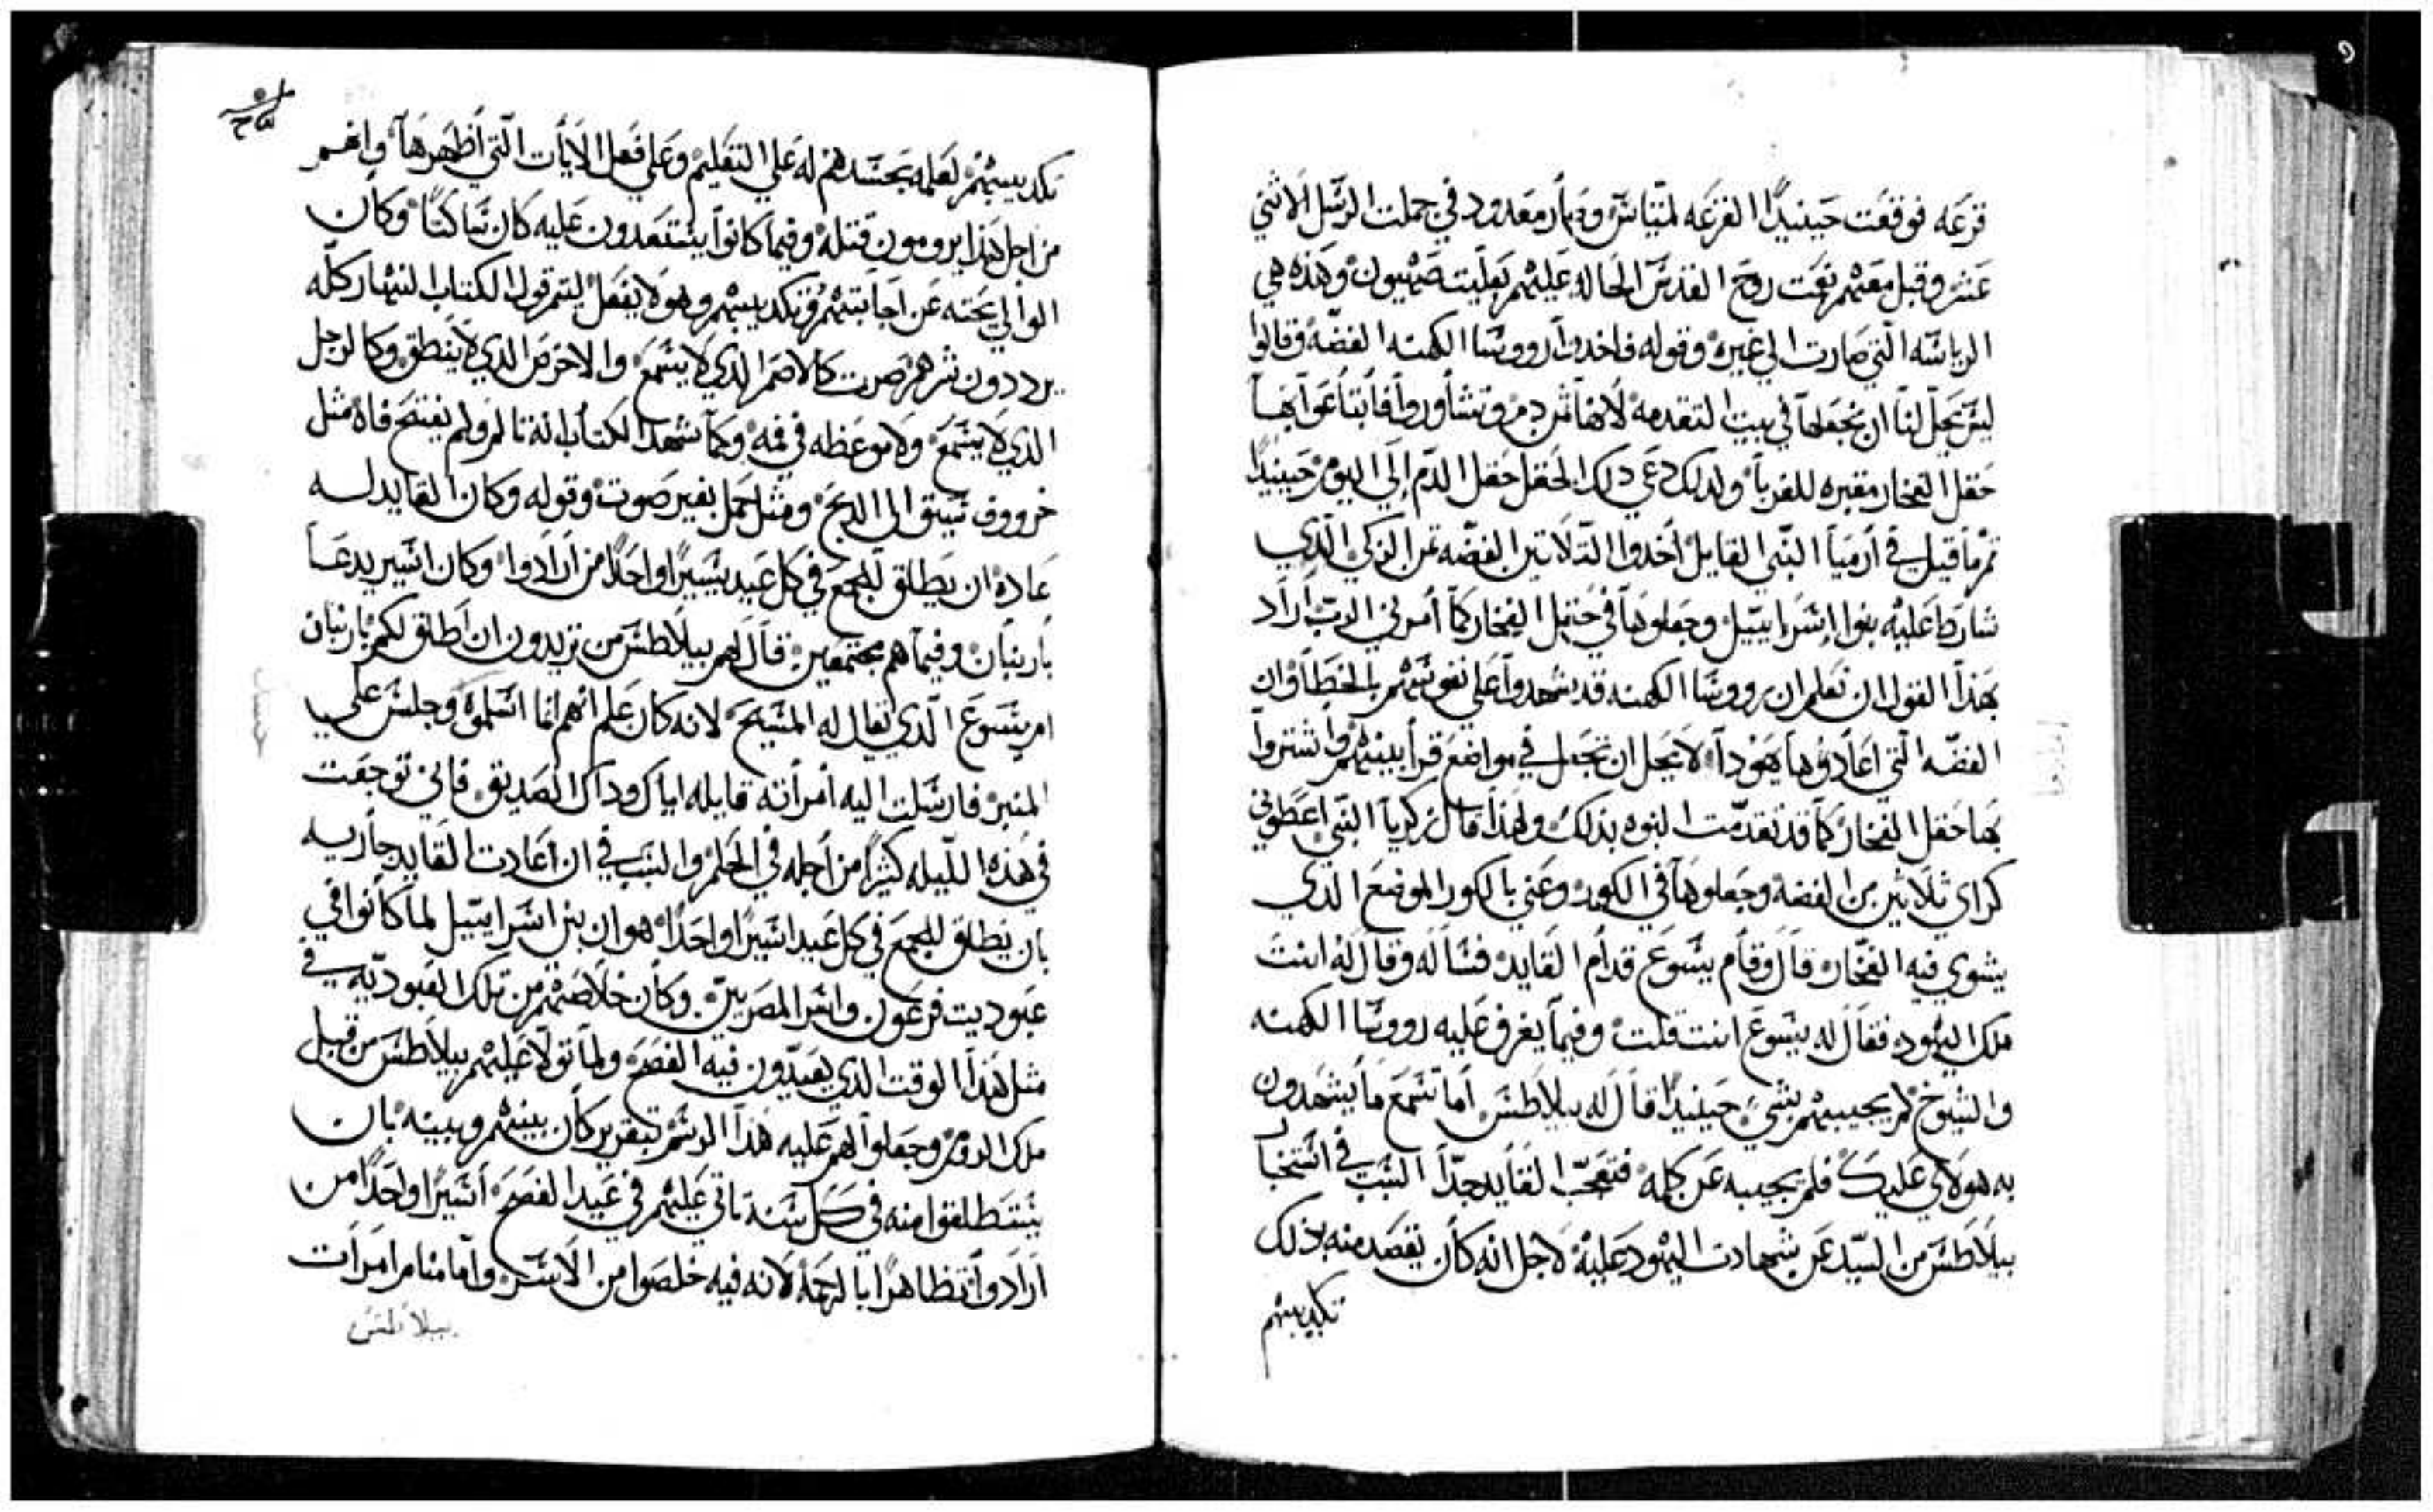 قرعه فوقعت حينيدًا القرعه لمتياس وصار معدود في جملت الرسل الاثني
عشر وقبل معهم نعت روح القدس الحاله عليهم بعليت صهيون وهذه هي
الرياسه التي صارت الي غيره وقوله فاخدوا رووسا الكهنه الفضه وقالوا
ليس يحل لنا ان نجعلها في بيت التقدمه لانها ثمن دم وتشاوروا فابتاعوا بها
حقل الفخار مقبره للغربا ولدلك دعي دلك الحقل حقل الدم إلي اليوم حينيدًا
تم ما قيل في أرميا النبي القايل أخدوا التلاتين الفضه ثمن الزكي الدي
شارط عليه بنوا إسراييل وجعلوها في حقل الفخار كما أمرني الرب أراد
بهذا القول ان نعلم ان رووسا الكهنه قد شهدوا علي نفوسهم بالخطا وان
الفضه التي أعادوها يهودا لا يحل ان تجعل في مواضع قرابينهم واشتروا
بها حقل الفخار كما قد تقدمت النبوه بذلك ولهذا قال زكريا النبي اعطوني
كراي ثلاثين من الفضة وجعلوها في الكور وعني بالكور الموضع الذي
يشوي فيه الفخار قال وقام يسوع قدام القايد فسأله وقال له انت
ملك اليهود فقال له يسوع انت قلت وفيما يقرف عليه رووسا الكهنه
والشيوخ لم يجيبهم بشي حينيدًا قال له بيلاطس أما تسمع ما يشهدون
به هولاي عليك فلم يجيبه عن كلمه فتعجب القايد جدًا السبب في استخبا
بيلاطس من السيد عن شهادت اليهود عليه لاجل انه كان يقصد منه بذلك
تكديبهم
تكديبهم لعلمه بحسدهم له علي التعليم وعلي فعل الايات التي أظهرها وانهم
من اجل هذا يرومون قتله وفيما كانوا يستعدون عليه كان ساكتًا وكان
الوالي يحته عن اجابتهم وتكديبهم وهو لا يفعل ليتم قول الكتاب النهار كله
يرددون شرهم صرت كالاصم الدي لا يسمع والاخرص الدي لا ينطق وكالرجل
الدي لا يسمع ولا موعظه في فمه وكما شهد الكتاب انه تالم ولم يفتح فاه مثل
خرووف سيق الي الدبح ومثل حمل بغير صوت وقوله وكان القايد له
عاده ان يطلق للجمع في كل عيد يسيرًا واحدًا من أرادوا وكان اسير يدعا
بارنبان وفيما هم مجتمعين قال لهم بيلاطس من تريدون ان اطلق لكم بارنبان
ام يسوع الذي يقال له المسيح لانه كان علم انهم انما اسلموه وجلس علي
المنبر فارسلت اليه أمرأته قايله اياك وداك الصديق فاني توجعت
في هذه الليله كثيرًا من أجله في الحلم والسبب في ان اعادت القايد جاريه
بان يطلق للجمع في كل عيد اسيرًا واحدًا هو ان بنو اسراييل لما كانوا في
عبوديت فرعون واسر المصريين وكان خلاصهم من تلك العبوديه في
مثل هذا الوقت الدي يعيدون فيه الفصح ولما تولا عليهم بيلاطس من قبل
ملك الروم وجعلوا لهم عليه هذا الرسم بتقرير كان بينهم وبينه بان
يستطلقوا منه في كل سنه تاتي عليهم في عيد الفصح أسيرًا واحدًا من
ارادوا تظاهرًا بالرحمه لانه فيه خلصوا من الاسر وأما منام امرات
بيلاطس